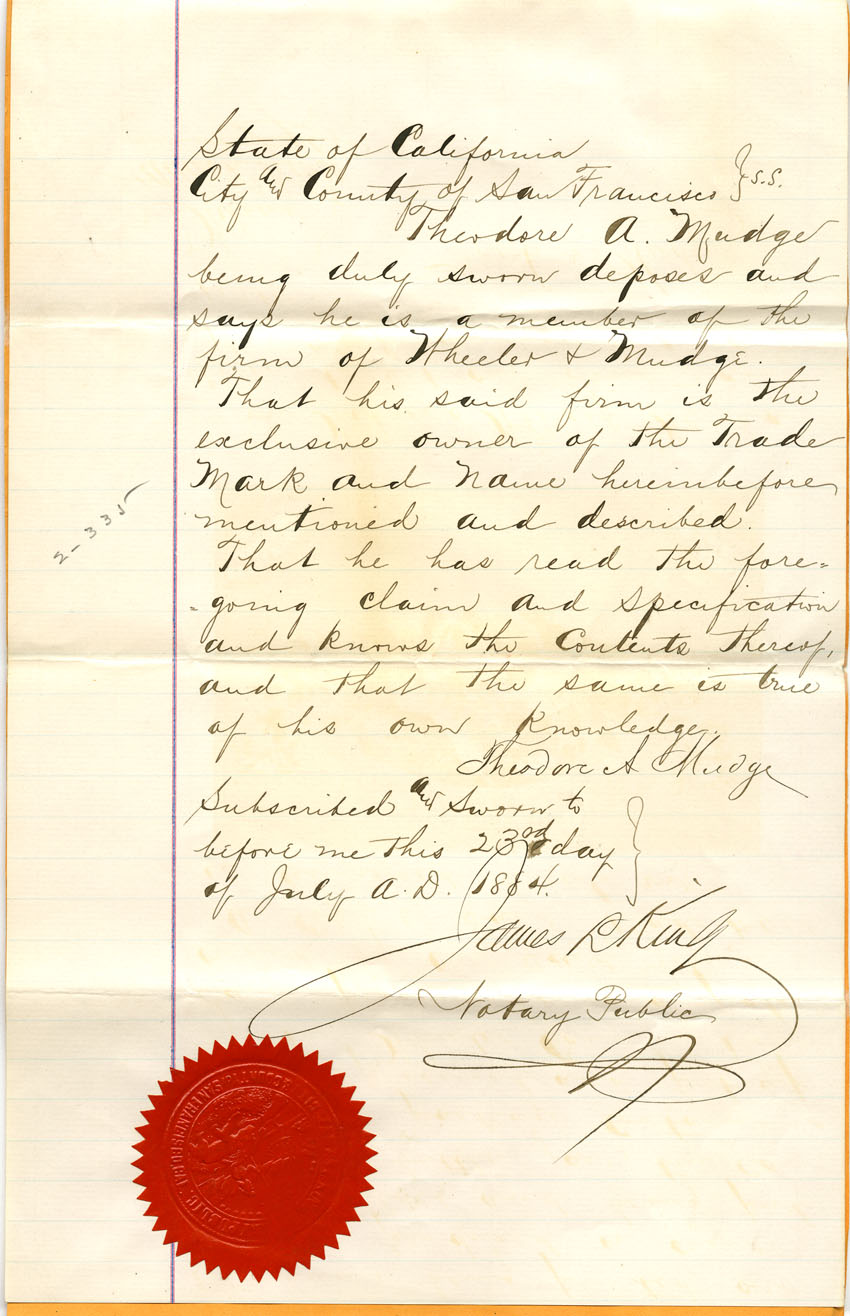 State of California
City and County of San Francisco } S.S.
Theodore A. Mudge
being duly sworn deposes and
says he is a member of the
firm of Wheeler & Mudge.
That his said firm is the
exclusive owner of the Trade
Mark and Name hereinbefore
mentioned and described.
That he has read the fore=
=going claim and specification
and knows the Contents thereof,
and that the same is true
of his own knowledge.
Theodore A Mudge
Subscribed and Sworn to
before me this 23rd day
of July A.D. 1884.
James L King
Notary Public
2-335